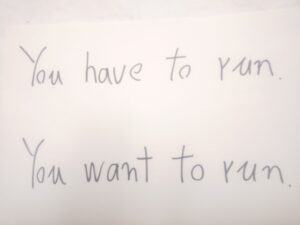 You have to run.
You want to run.